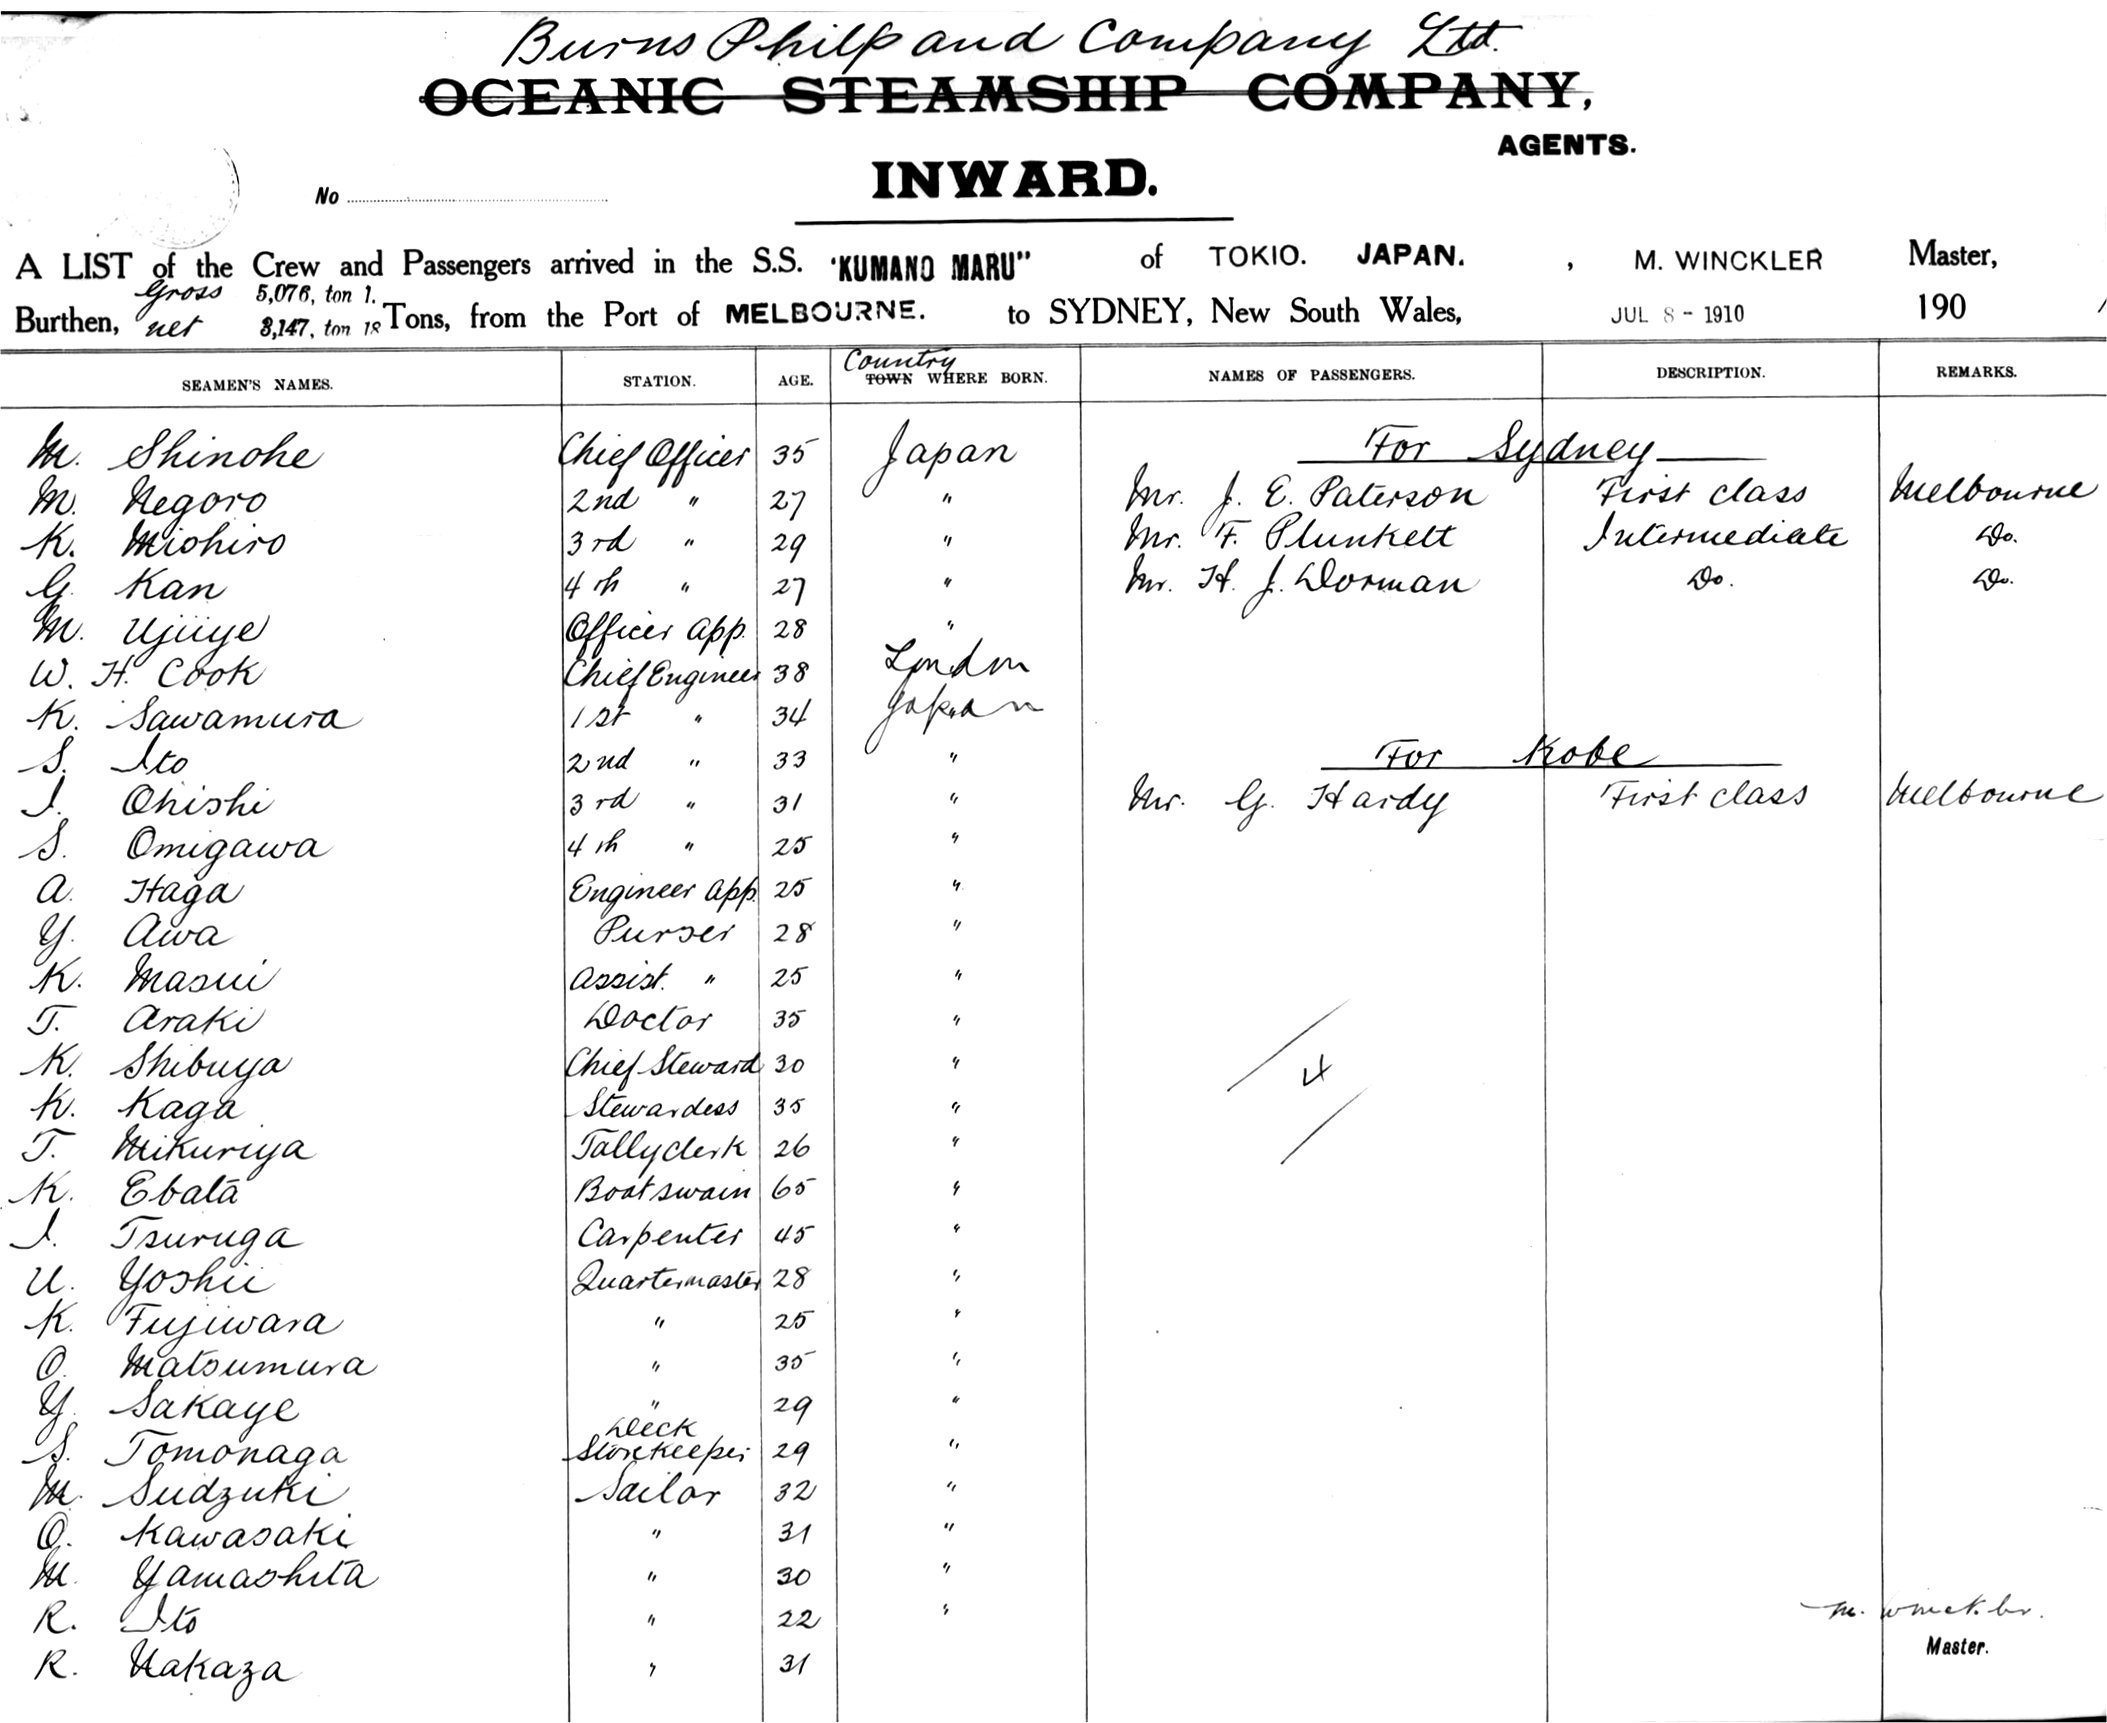 Burns Philp and Company Ltd.
OCEANIC STEAMSHIP COMPANY,
AGENTS.
INWARD.
No
A LIST of the Crew and Passengers arrived in the S.S. "KUMANO MARU" of TOKIO. JAPAN. , M. WINCKLER Master,
Gross 5,076, ton 1.
Burthen, net 3,147, ton 18 Tons, from the Port of MELBOURNE. to SYDNEY, New South Wales, JUL 8 - 1910 190
Country
SEAMEN'S NAMES. STATION. AGE. TOWN WHERE BORN. NAMES OF PASSENGERS. DESCRIPTION. REMARKS.
M. Shinohe Chief Officer 35 Japan For Sydney
M. Negoro 2nd " 27 " Mr. J. E. Paterson First class Melbourne
K. Miohiro 3rd " 29 " Mr. F. Plunkett Intermediate Do.
G. Kan 4th " 27 " Mr. H. J. Dorman Do. Do.
M. Ujiiye Officer App. 28 "
W. H. Cook Chief Engineer 38 London
K. Sawamura 1st " 34 Japan
S. Ito 2nd " 33 " For Kobe
I. Ohishi 3rd " 31 " Mr. G. Hardy First class Melbourne
S. Omigawa 4th " 25 "
A. Haga Engineer App. 25 "
Y. Awa Purser 28 "
K. Masui Assist. " 25 "
T. Araki Doctor 35 "
K. Shibuya Chief Steward 30 " 4
K. Kaga Stewardess 35 "
T. Mikuriya Tallyclerk 26 "
K. Ebata Boatswain 65 "
I. Tsuruga Carpenter 45 "
U. Yoshii Quartermaster 28 "
K. Fujiwara " 25 "
O. Matsumura " 35 "
Y. Sakaye " 29 "
S. Tomonaga Deck Storekeeper 29 "
M. Sudzuki Sailor 32 "
O. Kawasaki " 31 "
M. Yamashita " 30 "
R. Ito " 22 " M. Winckler.
Master.
R. Nakaza " 31